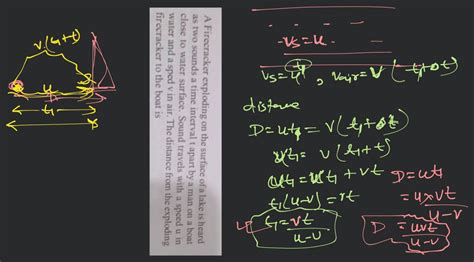 V(t₁+t)
u
t₁
A Firecracker exploding on the surface of a lake is heard
as two sounds a time interval t apart by a man on a boat
close to water surface. Sound travels with a speed u in
water and a sped v in air. The distance from the exploding
firecracker to the boat is
distance
D = ut₁ = v(t₁+t)
ut₁ = v(t₁+t)
ut₁ = vt₁ + vt
t₁(u-v) = vt
t₁ = vt
u-v
D = ut₁
= u × vt
u-v
D = uvt
u-v